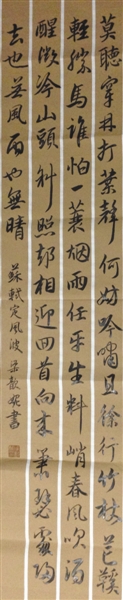 莫聽穿林打葉聲何妨吟嘯且徐行竹杖芒鞵
輕勝馬誰怕一蓑烟雨任平生料峭春風吹酒
醒微冷山頭斜照却相迎回首向来蕭瑟處歸
去也無風雨也無晴
蘇軾定風波